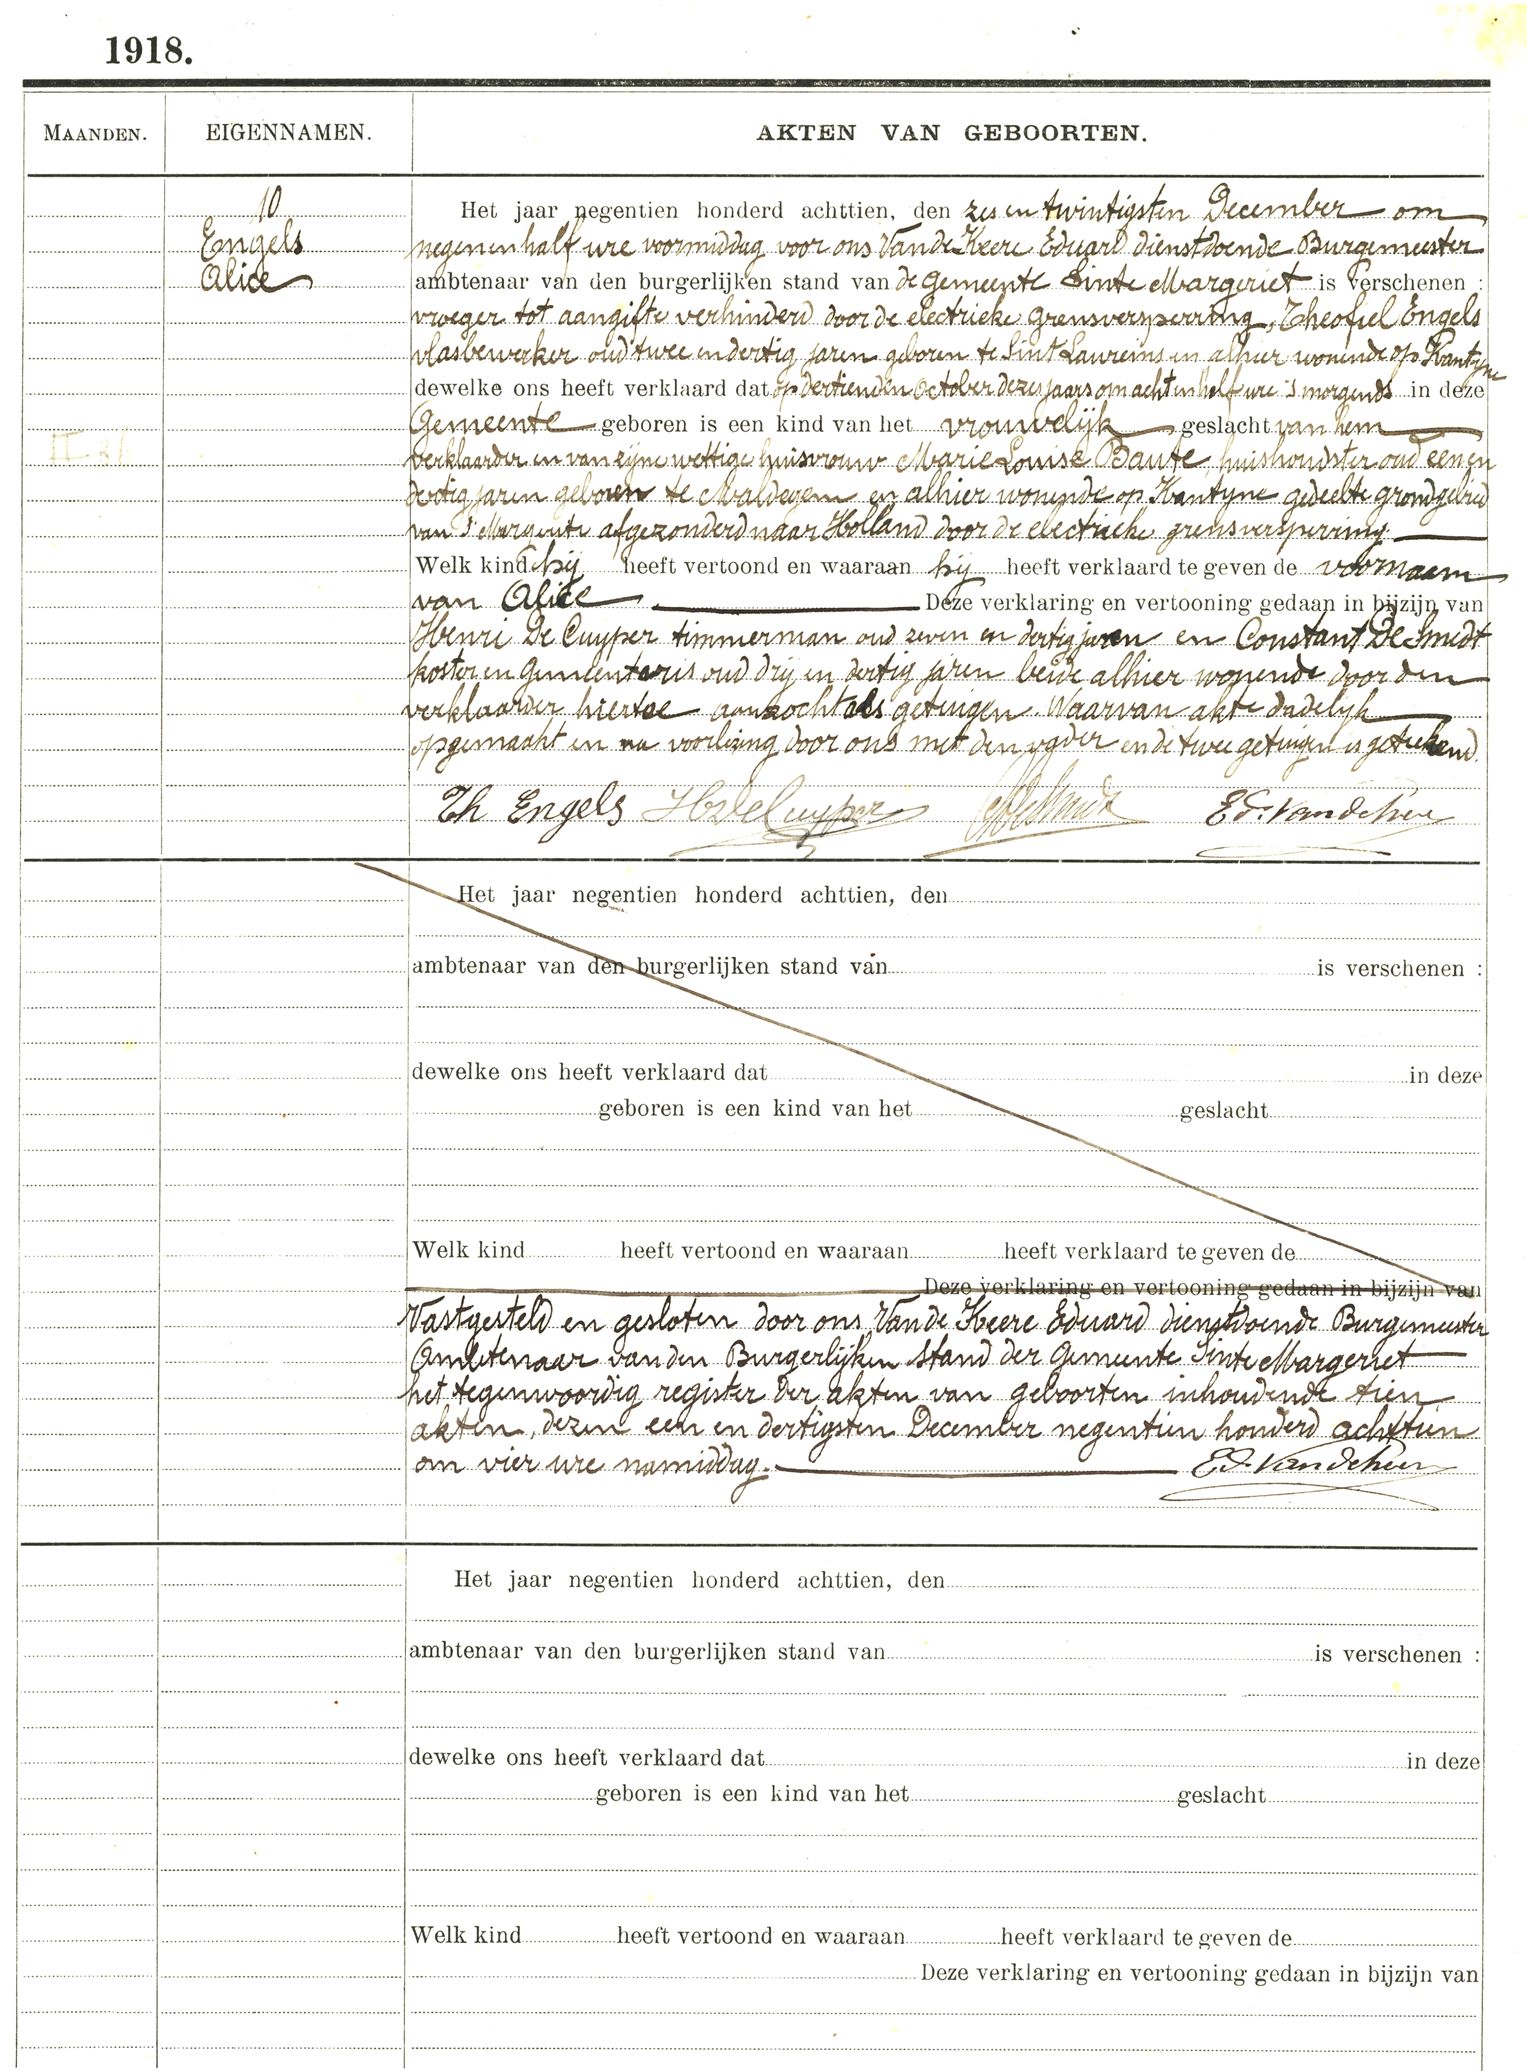 1918.
MAANDEN. EIGENNAMEN. AKTEN VAN GEBOORTEN.
10
Engels
Alice
Het jaar negentien honderd achttien, den zes en twintigsten December om
negen en half ure voormiddag voor ons Van de Keere Eduard dienstdoende Burgemeester
ambtenaar van den burgerlijken stand van de gemeente Sinte Margeriet is verschenen :
vroeger tot aangifte verhinderd door de electrieke grensversperring, Theofiel Engels
vlasbewerker oud twee en dertig jaren geboren te Sint Laureins en alhier wonende op Kantyne
dewelke ons heeft verklaard dat op dertienden October dezes jaars om acht en half ure 's morgends in deze
Gemeente geboren is een kind van het vrouwelijk geslacht van hem
verklaarder en van zijne wettige huisvrouw Marie Louise Baute, huishoudster oud een en
dertig jaren geboren te Maldegem en alhier wonende op Kantyne gedeelte grondgebied
van St Margriete afgezonderd naar Holland door de electrieke grensversperring
Welk kind hij heeft vertoond en waaraan hij heeft verklaard te geven de voornaam
van Alice Deze verklaring en vertooning gedaan in bijzijn van
Henri De Cuyper timmerman oud zeven en dertig jaren en Constant De Smedt
koster en Gemeentaris oud drij en dertig jaren beide alhier wonende door den
verklaarder hiertoe aanzocht als getuigen Waarvan akte dadelijk
opgemaakt en na voorlezing door ons met den vader en de twee getuigen is geteekend.
Th Engels H De Cuyper C De Smedt Ed. Van de Keere
Het jaar negentien honderd achttien, den
ambtenaar van den burgerlijken stand van is verschenen :
dewelke ons heeft verklaard dat in deze
geboren is een kind van het geslacht
Welk kind heeft vertoond en waaraan heeft verklaard te geven de
Deze verklaring en vertooning gedaan in bijzijn van
Vastgesteld en gesloten door ons Van de Keere Eduard dienstdoende Burgemeester
Ambtenaar van den Burgerlijken stand der Gemeente Sinte Margeriet
het tegenwoordig register der akten van geboorten inhoudende tien
akten, dezen een en dertigsten December negentien honderd achttien
om vier ure namiddag. Ed. Van de Keere
Het jaar negentien honderd achttien, den
ambtenaar van den burgerlijken stand van is verschenen :
dewelke ons heeft verklaard dat in deze
geboren is een kind van het geslacht
Welk kind heeft vertoond en waaraan heeft verklaard te geven de
Deze verklaring en vertooning gedaan in bijzijn van